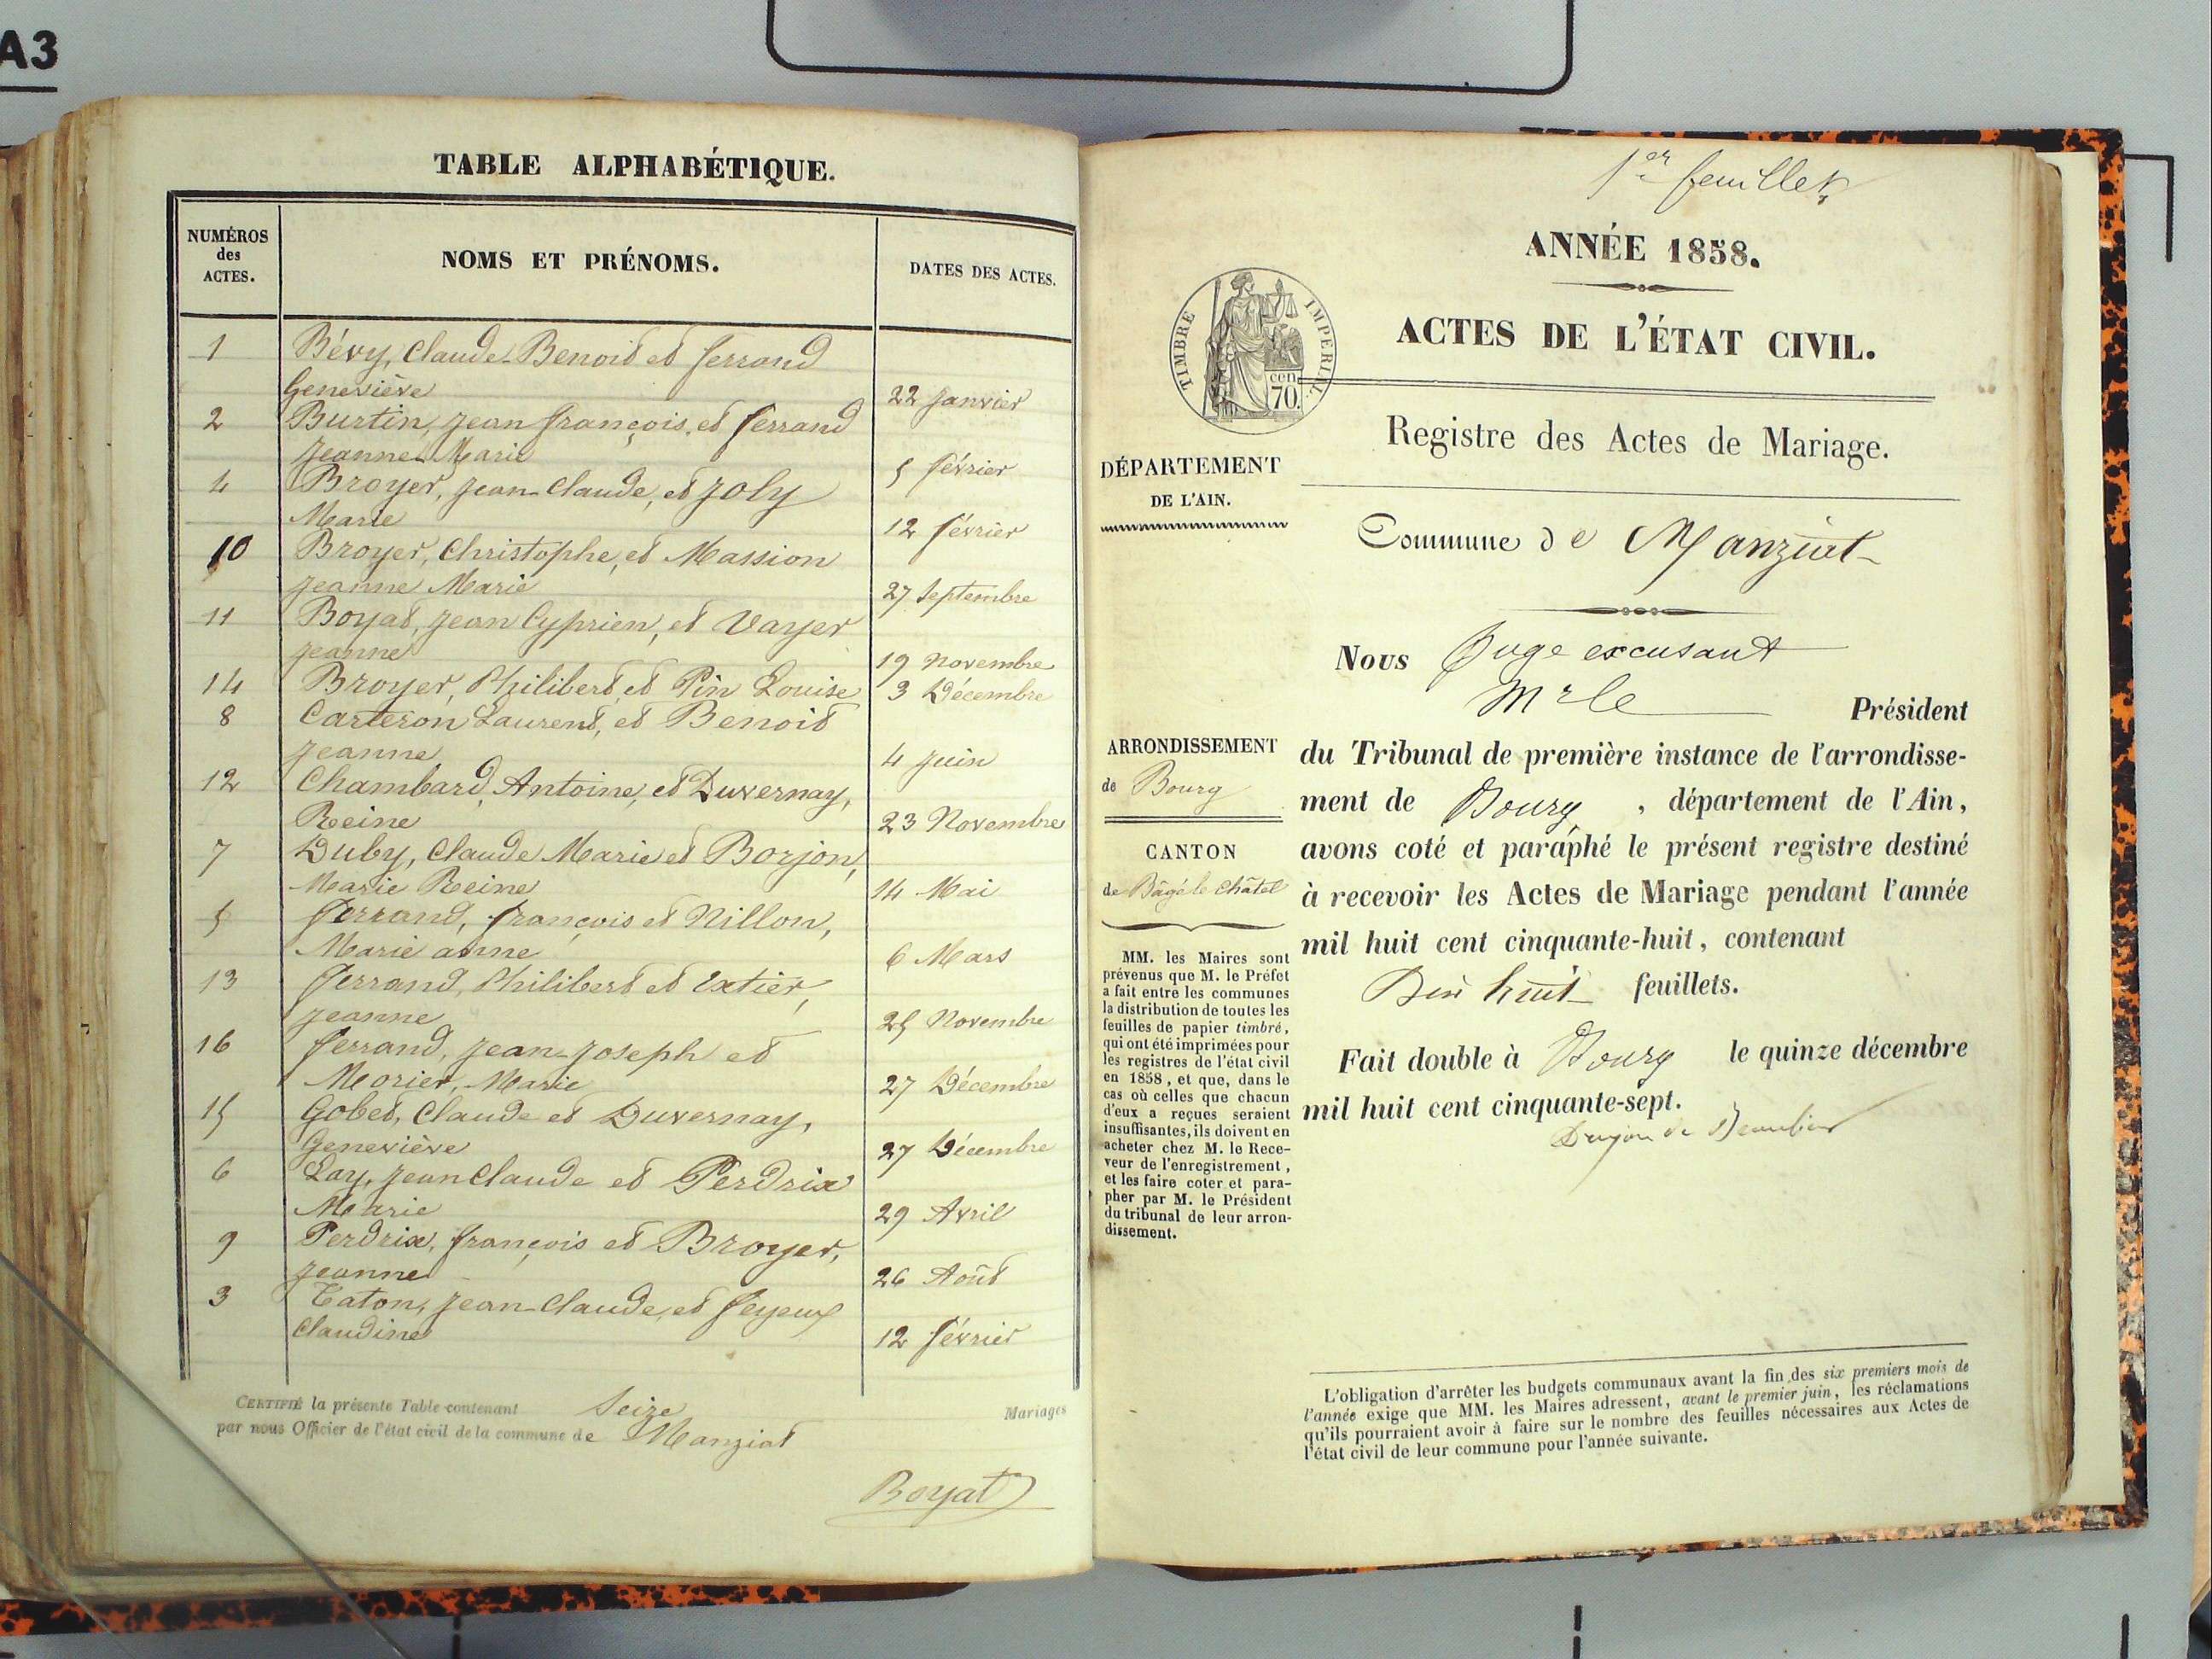 A3
TABLE ALPHABÉTIQUE.
NUMÉROS
des
ACTES.
NOMS ET PRÉNOMS.
DATES DES ACTES.
1 Bévy, Claude-Benoit et ferrand
Geneviève 22 Janvier
2 Burtin, Jean françois, et ferrand
Jeanne-Marie 5 février
4 Broyer, Jean-Claude, et Joly
Marie 12 février
10 Broyer, Christophe, et Massion
Jeanne Marie 27 Septembre
11 Boyat, Jean Cyprien, et Vayer
Jeanne 19 Novembre
14 Broyer, Philibert, et Pin Louise 3 Décembre
8 Carteron Laurent, et Benoit
Jeanne 4 Juin
12 Chambard, Antoine, et Duvernay,
Reine 23 Novembre
7 Duby, Claude Marie et Borjon,
Marie Reine 14 Mai
5 ferrand, françois et Nillon,
Marie anne 6 Mars
13 ferrand, Philibert et Extier,
Jeanne 25 Novembre
16 ferrand, Jean-Joseph et
Morier, Marie 27 Décembre
15 Gobet, Claude et Duvernay,
Geneviève 27 Décembre
6 Lay, Jean Claude et Perdrix
Marie 29 Avril
9 Perdrix, françois et Broyer,
Jeanne 26 Août
3 Taton, Jean-Claude, et feyeux
Claudine 12 février
CERTIFIÉ la présente Table contenant Seize Mariages
par nous Officier de l'état civil de la commune de Manziat
Boyat
1er feuillet
ANNÉE 1858.
TIMBRE IMPÉRIAL
cen
70.
ACTES DE L'ÉTAT CIVIL.
Registre des Actes de Mariage.
DÉPARTEMENT
DE L'AIN.
Commune de Manziat
Nous Juge excusant
Mr le Président
du Tribunal de première instance de l'arrondisse-
ment de Bourg, département de l'Ain,
avons coté et paraphé le présent registre destiné
à recevoir les Actes de Mariage pendant l'année
mil huit cent cinquante-huit, contenant
Dix huit feuillets.
Fait double à Bourg le quinze décembre
mil huit cent cinquante-sept.
ARRONDISSEMENT
de Bourg
CANTON
de Bâgé le Châtel
MM. les Maires sont
prévenus que M. le Préfet
a fait entre les communes
la distribution de toutes les
feuilles de papier timbré,
qui ont été imprimées pour
les registres de l'état civil
en 1858, et que, dans le
cas où celles que chacun
d'eux a reçues seraient
insuffisantes, ils doivent en
acheter chez M. le Rece-
veur de l'enregistrement,
et les faire coter et para-
pher par M. le Président
du tribunal de leur arron-
dissement.
L'obligation d'arrêter les budgets communaux avant la fin des six premiers mois de
l'année exige que MM. les Maires adressent, avant le premier juin, les réclamations
qu'ils pourraient avoir à faire sur le nombre des feuilles nécessaires aux Actes de
l'état civil de leur commune pour l'année suivante.